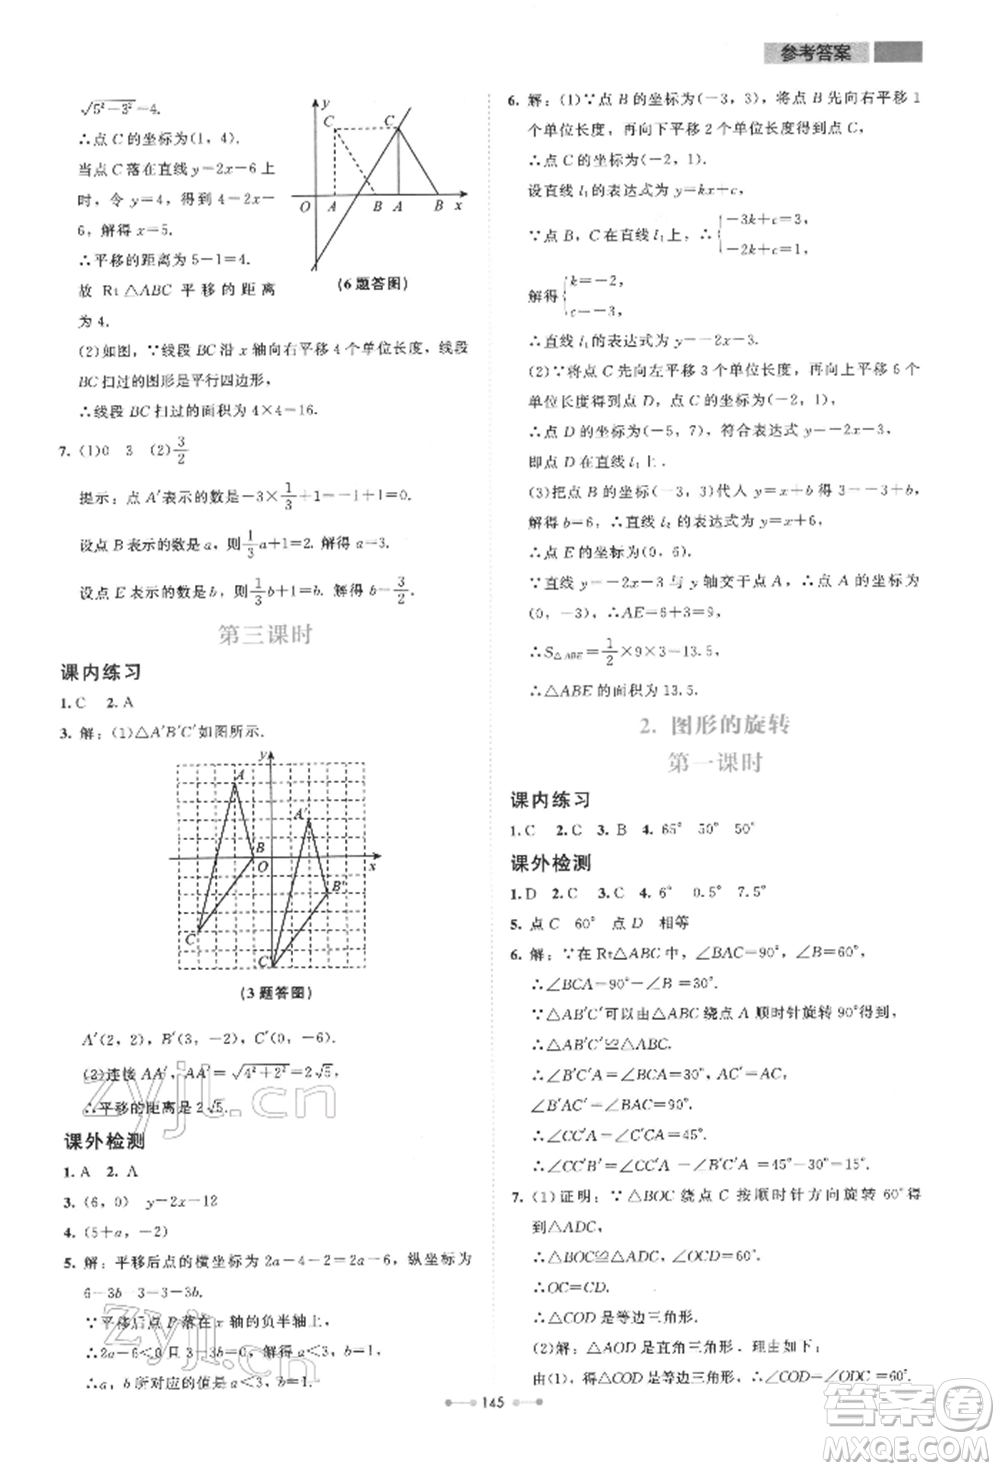 参考答案
√5²－3²＝4.
∴点 C 的坐标为(1，4).
当点 C 落在直线 y＝2x－6 上
时，令 y＝4，得到 4＝2x－
6，解得 x＝5.
∴平移的距离为 5－1＝4.
故 Rt△ABC 平移的距离
为 4.
y C C O A B A B x
(6 题答图)
(2)如图，∵线段 BC 沿 x 轴向右平移 4 个单位长度，线段
BC 扫过的图形是平行四边形，
∴线段 BC 扫过的面积为 4×4＝16.
7. (1)0　3　(2)3/2
提示：点 A′表示的数是－3×1/3＋1＝－1＋1＝0.
设点 B 表示的数是 a，则1/3a＋1＝2. 解得 a＝3.
设点 E 表示的数是 b，则1/3b＋1＝b. 解得 b＝3/2.
第三课时
课内练习
1. C　2. A
3. 解：(1)△A′B′C′如图所示.
y A A′ B O x B′ C C′
(3 题答图)
A′(2，2)，B′(3，－2)，C′(0，－6).
(2)连接 AA′，AA′＝√4²＋2²＝2√5.
∴平移的距离是 2√5.
课外检测
1. A　2. A
3. (6，0)　y＝2x－12
4. (5＋a，－2)
5. 解：平移后点的横坐标为 2a－4－2＝2a－6，纵坐标为
6－3b－3＝3－3b.
∵平移后点 P 落在 x 轴的负半轴上，
∴2a－6＜0 且 3－3b＝0. 解得 a＜3，b＝1.
∴a，b 所对应的值是 a＜3，b＝1.
6. 解：(1)∵点 B 的坐标为(－3，3)，将点 B 先向右平移 1
个单位长度，再向下平移 2 个单位长度得到点 C，
∴点 C 的坐标为(－2，1).
设直线 l₁ 的表达式为 y＝kx＋c，
∵点 B，C 在直线 l₁ 上，∴{－3k＋c＝3，－2k＋c＝1，
解得{k＝－2，c＝－3.
∴直线 l₁ 的表达式为 y＝－2x－3.
(2)∵将点 C 先向左平移 3 个单位长度，再向上平移 6 个
单位长度得到点 D，点 C 的坐标为(－2，1)，
∴点 D 的坐标为(－5，7)，符合表达式 y＝－2x－3，
即点 D 在直线 l₁ 上.
(3)把点 B 的坐标(－3，3)代入 y＝x＋b 得 3＝－3＋b，
解得 b＝6，∴直线 l₂ 的表达式为 y＝x＋6，
∴点 E 的坐标为(0，6).
∵直线 y＝－2x－3 与 y 轴交于点 A，∴点 A 的坐标为
(0，－3)，∴AE＝6＋3＝9，
∴S△ABE＝1/2×9×3＝13.5，
∴△ABE 的面积为 13.5.
2. 图形的旋转
第一课时
课内练习
1. C　2. C　3. B　4. 65°　50°　50°
课外检测
1. D　2. C　3. C　4. 6°　0.5°　7.5°
5. 点 C　60°　点 D　相等
6. 解：∵在 Rt△ABC 中，∠BAC＝90°，∠B＝60°，
∴∠BCA＝90°－∠B＝30°.
∵△AB′C′可以由△ABC 绕点 A 顺时针旋转 90°得到，
∴△AB′C′≌△ABC.
∴∠B′C′A＝∠BCA＝30°，AC′＝AC，
∠B′AC′＝∠BAC＝90°.
∴∠CC′A＝∠C′CA＝45°.
∴∠CC′B′＝∠CC′A－∠B′C′A＝45°－30°＝15°.
7. (1)证明：∵△BOC 绕点 C 按顺时针方向旋转 60°得
到△ADC，
∴△BOC≌△ADC，∠OCD＝60°.
∴OC＝CD.
∴△COD 是等边三角形.
(2)解：△AOD 是直角三角形. 理由如下：
由(1)，得△COD 是等边三角形，∠CDO＝∠ODC＝60°.
145
zyjl.cn
zyjl.cn
答案圈
MXQE.COM